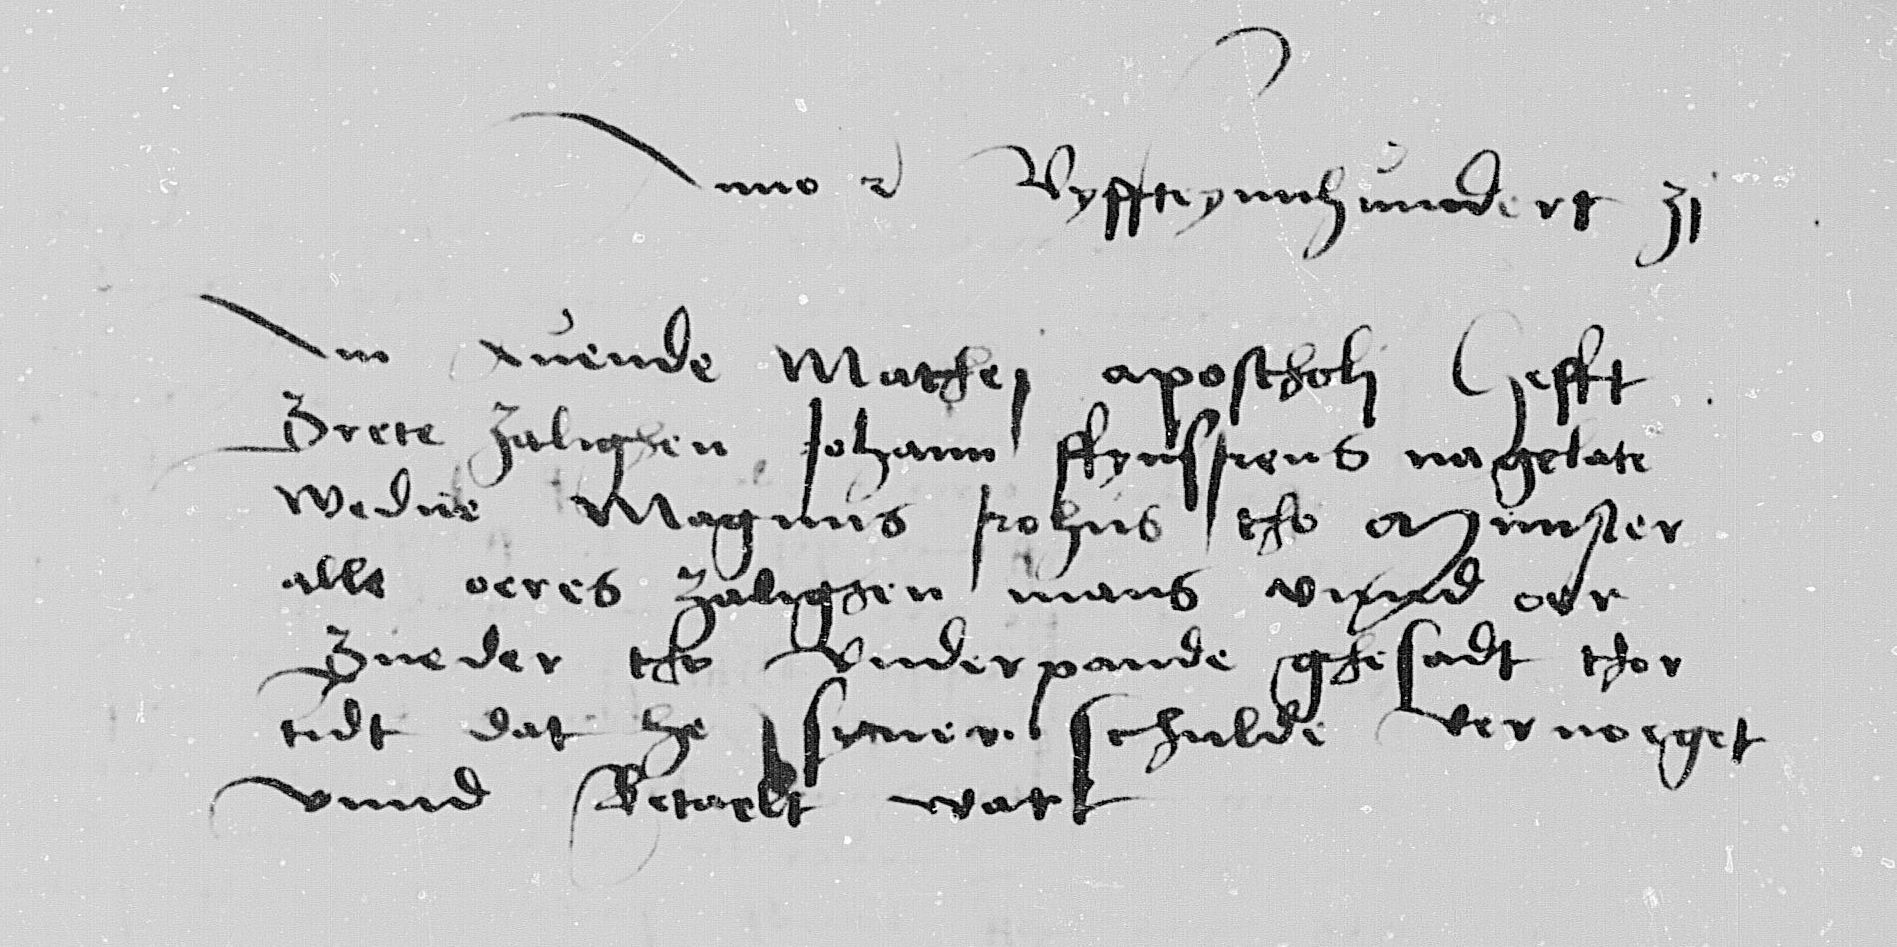 Anno etc Vyffteynnhundert xj
Am Auende Mathei apostholi Hefft
Grete zalighen Johann ffynssens nagelate
Wedue Magnus frohus tho Munster
alle oeres zalighen mans vnnd oer
Gueder tho Vnderpande ghesadt thor
tidt dat he syner schulde vernoeget
vnnd Betaelt wart